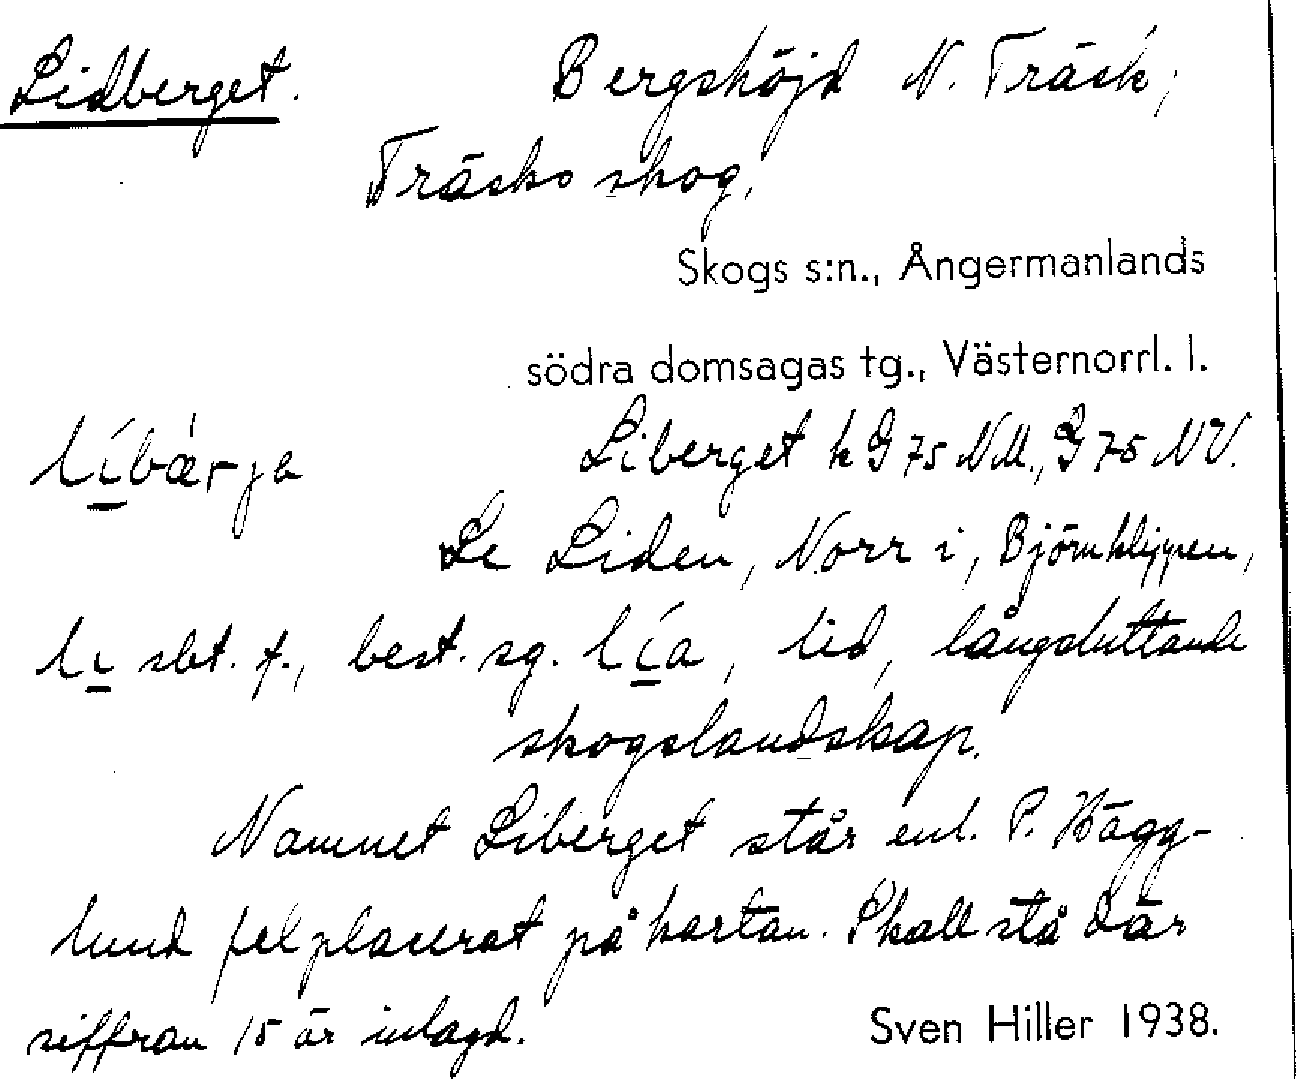 Lidberget. Bergshöjd N. Träsk;
Träsks skog.
Skogs s:n., Ångermanlands
södra domsagas tg., Västernorrl. l.
lí̲bæ̀rja Liberget k G 75 NM., G 75 NV.
Se Liden, Norr i, Björnklippen,
lı̲ sbt. f., best. sg. lí̲a, lid, långsluttande
skogslandskap.
Namnet Liberget står enl. P. Hägg-
lund felplacerat på kartan. Skall stå där
siffran 15 är inlagd. Sven Hiller 1938.